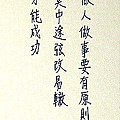 做人做事要有原則
莫中途弦改易轍
才能成功